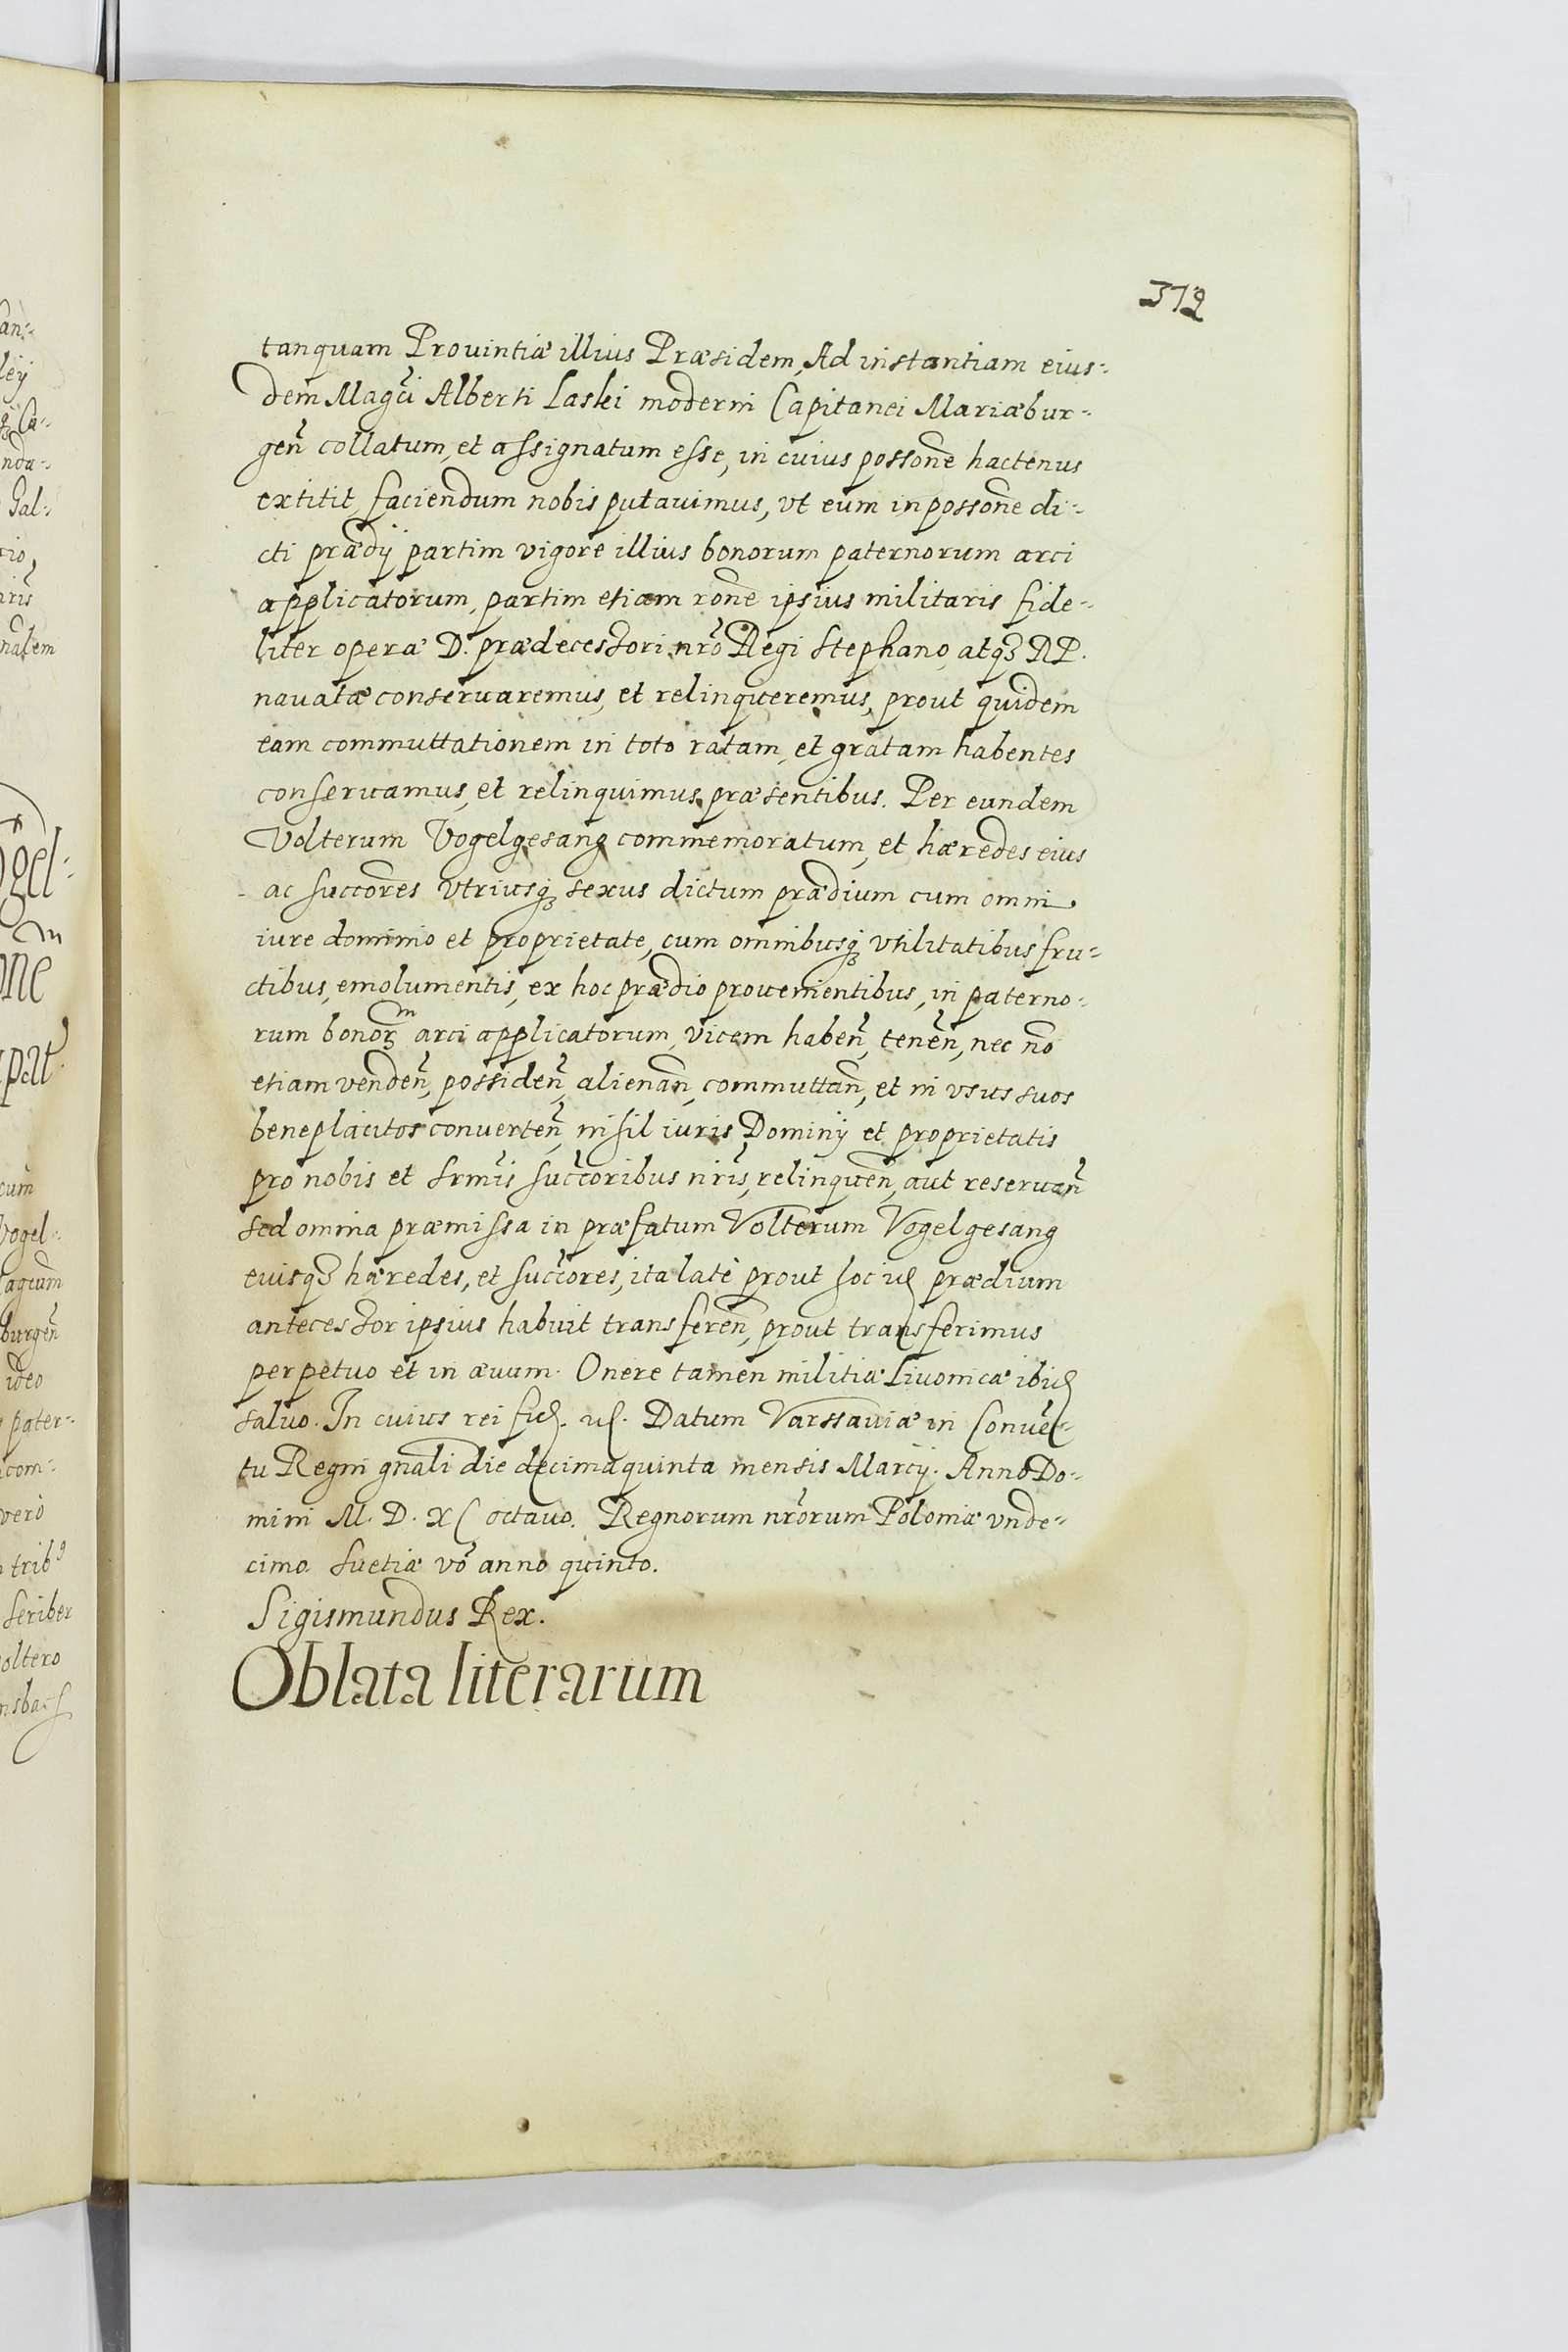 372
tanquam Prouintiæ illius Præsidem, Ad instantiam eius-
dem Magci Alberti Laski moderni Capitanei Mariæbur-
gen̄ collatum, et assignatum esse, in cuius possone hactenus
extitit, faciendum nobis putauimus, vt eum in possone di-
cti prædij partim vigore illius bonorum paternorum arci
applicatorum, partim etiam rōne ipsius militaris fide-
liter operæ D. prædecessori nrō Regi Stephano, atqꝫ RP.
nauatæ conseruaremus, et relinqueremus, prout quidem
eam commuttationem in toto ratam, et gratam habentes
conseruamus, et relinquimus præsentibus. Per eundem
Volterum Vogelgesang commemoratum, et hæredes eius
ac succores vtriusqꝫ sexus dictum prædium cum omni
iure dominio et proprietate, cum omnibusqꝫ vtilitatibus fru-
ctibus, emolumentis, ex hoc prædio prouenientibus, in paterno-
rum bonorꝫ m arci applicatorum, vicem haben̄, tenen̄, nec nō
etiam venden̄, possiden̄, alienan̄, commuttan̄, et in vsus suos
beneplacitos conuerten̄, nihil iuris Dominij et proprietatis
pro nobis et Srmis succoribus nris, relinquen̄, aut reseruan̄
sed omnia præmissa in præfatum Volterum Vogelgesang
eiusqꝫ hæredes, et succores, ita late prout hoc id prædium
antecessor ipsius habuit transferen̄, prout transferimus
perpetuo et in æuum. Onere tamen militiæ Liuonicæ ibid
saluo. In cuius rei fid. etc. Datum Varssauiæ in Conuen-
tu Regni gnali die decima quinta mensis Marcij. Anno Do-
mini M. D. XC octauo. Regnorum nrorum Poloniæ vnde-
cimo. Suetiæ vō anno quinto.
Sigismundus Rex.
Oblata literarum